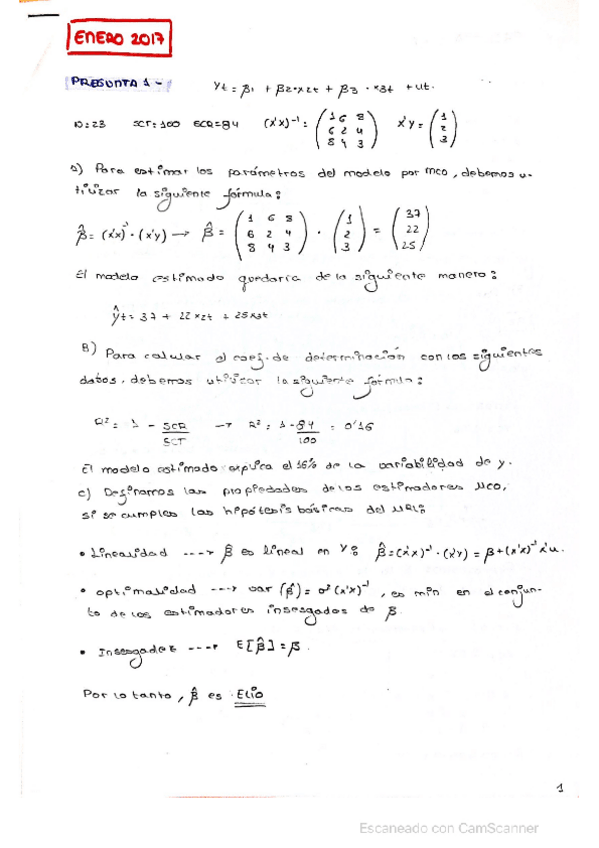 ENERO 2017
PREGUNTA 1 -
yt = β1 + β2·x2t + β3·x3t + ut.
n=23 SCT=100 SCR=84 (x'x)⁻¹ = (1 6 8 / 6 2 4 / 8 4 3) x'y = (1 / 2 / 3)
a) Para estimar los parámetros del modelo por MCO, debemos u-
tilizar la siguiente fórmula:
β̂ = (x'x)⁻¹·(x'y) → β̂ = (1 6 8 / 6 2 4 / 8 4 3) · (1 / 2 / 3) = (37 / 22 / 25)
El modelo estimado quedaría de la siguiente manera:
ŷt = 37 + 22x2t + 25x3t
B) Para calcular el coef. de determinación con los siguientes
datos, debemos utilizar la siguiente fórmula:
R² = 1 - SCR/SCT → R² = 1 - 84/100 = 0'16
El modelo estimado explica el 16% de la variabilidad de y.
c) Definamos las propiedades de los estimadores MCO,
si se cumplen las hipótesis básicas del MRL:
• Linealidad ----→ β̂ es lineal en y: β̂ = (x'x)⁻¹·(x'y) = β + (x'x)⁻¹x'u.
• optimalidad ---→ var(β̂) = σ²(x'x)⁻¹, es min en el conjun-
to de los estimadores insesgados de β.
• Insesgadez ----→ E[β̂] = β.
Por lo tanto, β̂ es ELIO
1
Escaneado con CamScanner